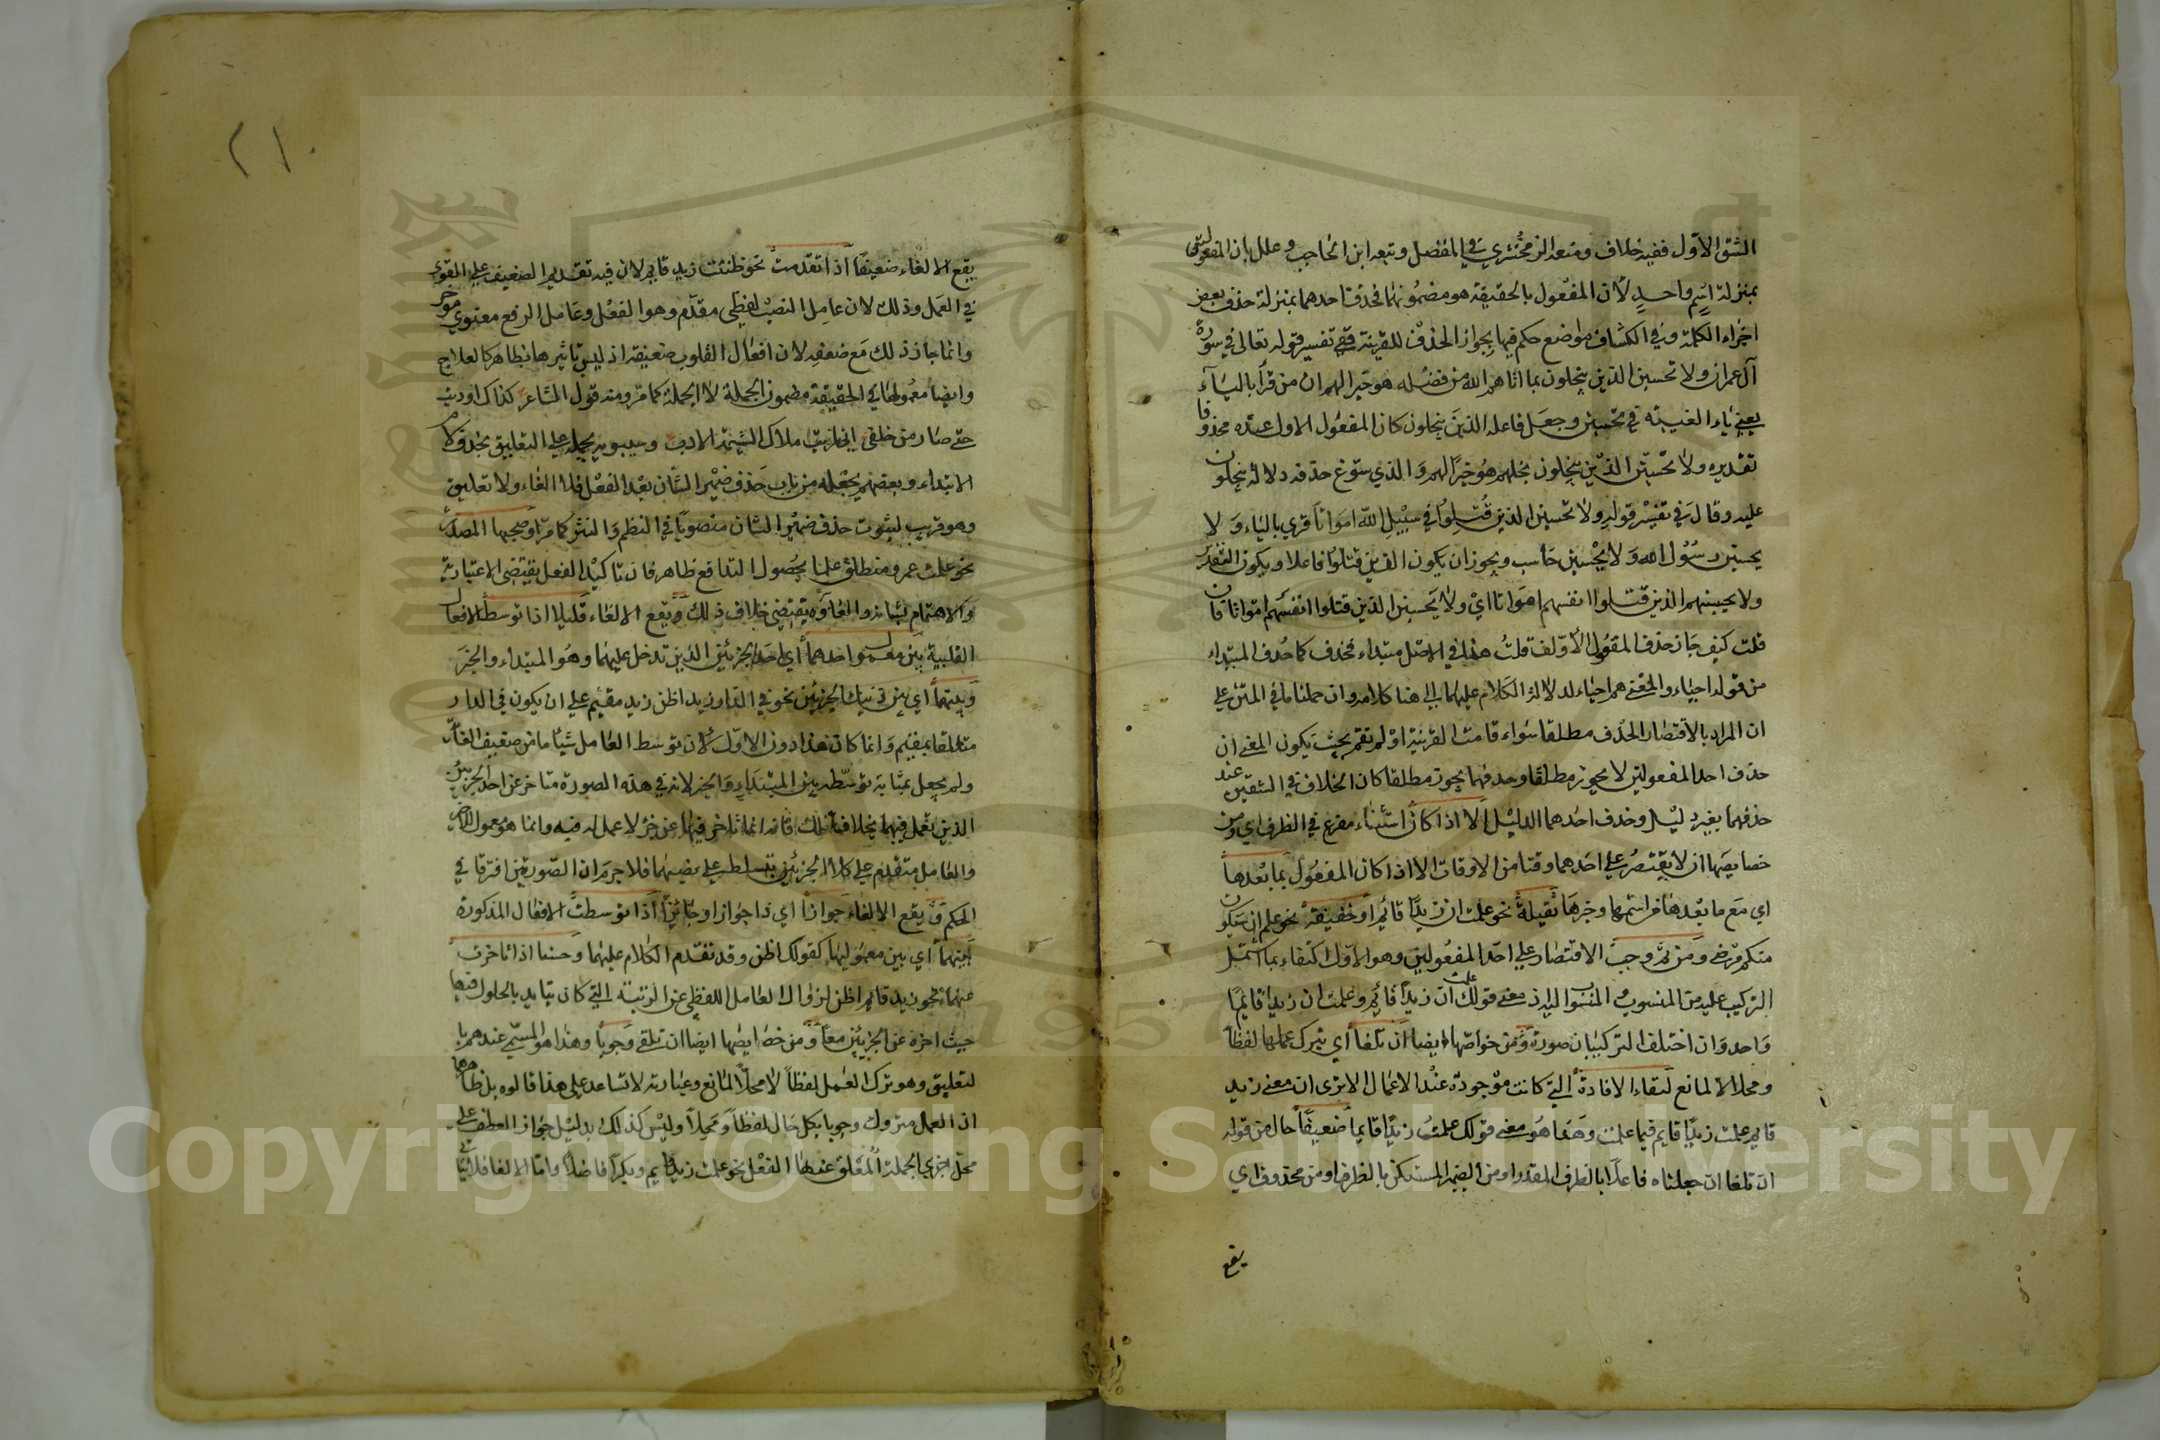 الشق الاول ففيه خلاف ومنعه الزمخشري في المفصل وتبعه ابن الحاجب وعلل بان المفعولين
بمنزلة اسم واحد لان المفعول بالحقيقة هو مضمونهما فحذف احدهما بمنزلة حذف بعض
اجزاء الكلمة وفي الكشاف مواضع حكم فيها بجواز الحذف للقرينة ففي تفسير قوله تعالى في سورة
آل عمران ولا تحسبن الذين يبخلون بما اتاهم الله من فضله هو خيرا لهم ان من قرأ بالياء
يعني ياء الغيبة في تحسبن وجعل فاعله الذين يبخلون كان المفعول الاول عنده محذوفا
تقديره ولا تحسبن الذين يبخلون بخلهم هو خيرا لهم والذي سوغ حذفه دلالة يبخلون
عليه وقال في تفسير قوله ولا تحسبن الذين قتلوا في سبيل الله امواتا قري بالياء ولا
يحسبن رسول الله ولا يحسبن حاسب ويجوز ان يكون الذين قتلوا فاعلا ويكون التقدير
ولا يحسبنهم الذين قتلوا انفسهم امواتا اي ولا يحسبن الذين قتلوا انفسهم امواتا فان
قلت كيف جاز حذف المفعول الاول قلت هذا في الاصل مبتداء فحذف كما حذف المبتداء
من قوله احياء والمعنى هم احياء لدلالة الكلام عليهما الى هنا كلامه وان حملنا ما في المتن على
ان المراد بالاقتصار الحذف مطلقا سواء قامت القرينة او لم تقم بحيث يكون المعنى ان
حذف احد المفعولين لا يجوز مطلقا وحذفهما يجوز مطلقا كان الخلاف في الشقين عند
حذفهما بغير دليل وحذف احدهما الدليل الا اذا كان استثناء مفرغ في الظرف اي ومن
خصايصها ان لا يقتصر على احدهما وقتا من الاوقات الا اذا كان المفعول بما بعدها
اي مع ما بعدها من اسمها وخبرها ثقيلة نحو علمت ان زيدا قائم او خفيفة نحو علم ان سيكون
منكم مرضى ومن ثم وجب الاقتصار على احد المفعولين وهو الاول اكتفاء بما اشتمل
التركيب عليه من المنسوب والمنسوب اليه اذ معنى قولك علمت ان زيدا قائم وعلمت ان زيدا قائما
واحد وان اختلف التركيبان صورة ومن خواصها ايضا ان تلغا اي يترك عملها لفظا
ومحلا لا لمانع لبقاء الافادة التي كانت موجودة عند الاعمال الا ترى ان معنى زيد
قايم علمت زيدا قايم فيما علمت وهذا هو معنى قولك علمت زيدا قايما ضعيفا حال من قوله
ان تلغا ان جعلناه فاعلا بالظرف المقدر او من الضمير المستكن بالظرف او من محذوف اي
يقع
٢١٠
يقع الالغاء ضعيفا اذا تقدمت نحو ظننت زيد قايم لان فيه تقديم الضعيف على القوي
في العمل وذلك لان عامل النصب لفظي مقدم وهو الفعل وعامل الرفع معنوي موخر
وانما جاز ذلك مع ضعفه لان افعال القلوب ضعيفة اذ ليس تاثيرها بظاهر كالعلاج
وايضا معمولها في الحقيقة مضمون الجملة لا الجملة كما مر ومنه قول الشاعر كذاك ادبت
حتى صار من خلقي اني رايت ملاك الشيمة الادب وسيبويه يحمله على التعليق بحذف لام
الابتداء وبعضهم يجعله من باب حذف ضمير الشان بعد الفعل فلا الغاء ولا تعليق
وهو قريب لثبوت حذف ضمير الشان منصوبا في النظم والنثر كما مر او صحبها المصدر
نحو علمت عمرو منطلق علما بحصول التدافع ظاهر فان تاكيد الفعل يقتضي الاعتبار به
والاهتمام بشانه والغاوه يقتضي خلاف ذلك ويقع الالغاء قليلا اذا توسطت الافعال
القلبية بين معمول احدهما اي احد الجزئين الذين تدخل عليهما وهو المبتداء والخبر
وبينهما اي بين ذينك الجزئين نحو في الدار زيد اظن زيد مقيم على ان يكون في الدار
متعلقا بمقيم وانما كان هذا دون الاول لان توسط العامل شيئا ما من ضعيف الغاء
ولم يجعل بمثابة توسطه بين المبتداء والخبر لانه في هذه الصورة متاخر عن احد الجزئين
الذين يعمل فيهما بخلاف تلك فانه انما تاخر فيها عن خبر لا عمل له فيه وانما هو معمول للخبر
والعامل متقدم على كلا الجزئين متسلط على نصبهما فلا جرم ان الصورتين افترقا في
الحكم ويقع الالغاء جوازا اي ذا جواز او جائزا اذا توسطت الافعال المذكورة
بينهما اي بين معموليها كقولك اظن وقد تقدم الكلام عليهما وحسنا اذا تاخرت
عنهما نحو زيد قايم اظن لزوال العامل اللفظي عن الرتبة التي كان تتايد بالحلول فيها
حيث اخره عن الجزئين معا ومن خصايصها ايضا ان تلقى وجوبا وهذا هو المسمى عندهم با
لتعليق وهو ترك العمل لفظا لا محلا لمانع وعبارته لا تساعد على هذا قالوه بل ظاهرها
اذ العمل متروك وجوبا بكل حال لفظا ومحلا وليس كذلك بدليل جواز العطف على
محل اخرى بالجملة المعلق عنها الفعل نحو علمت زيد قايم وبكرا فاضلا واما الالغا فلا شيئا
Copyright © King Saud University
1957